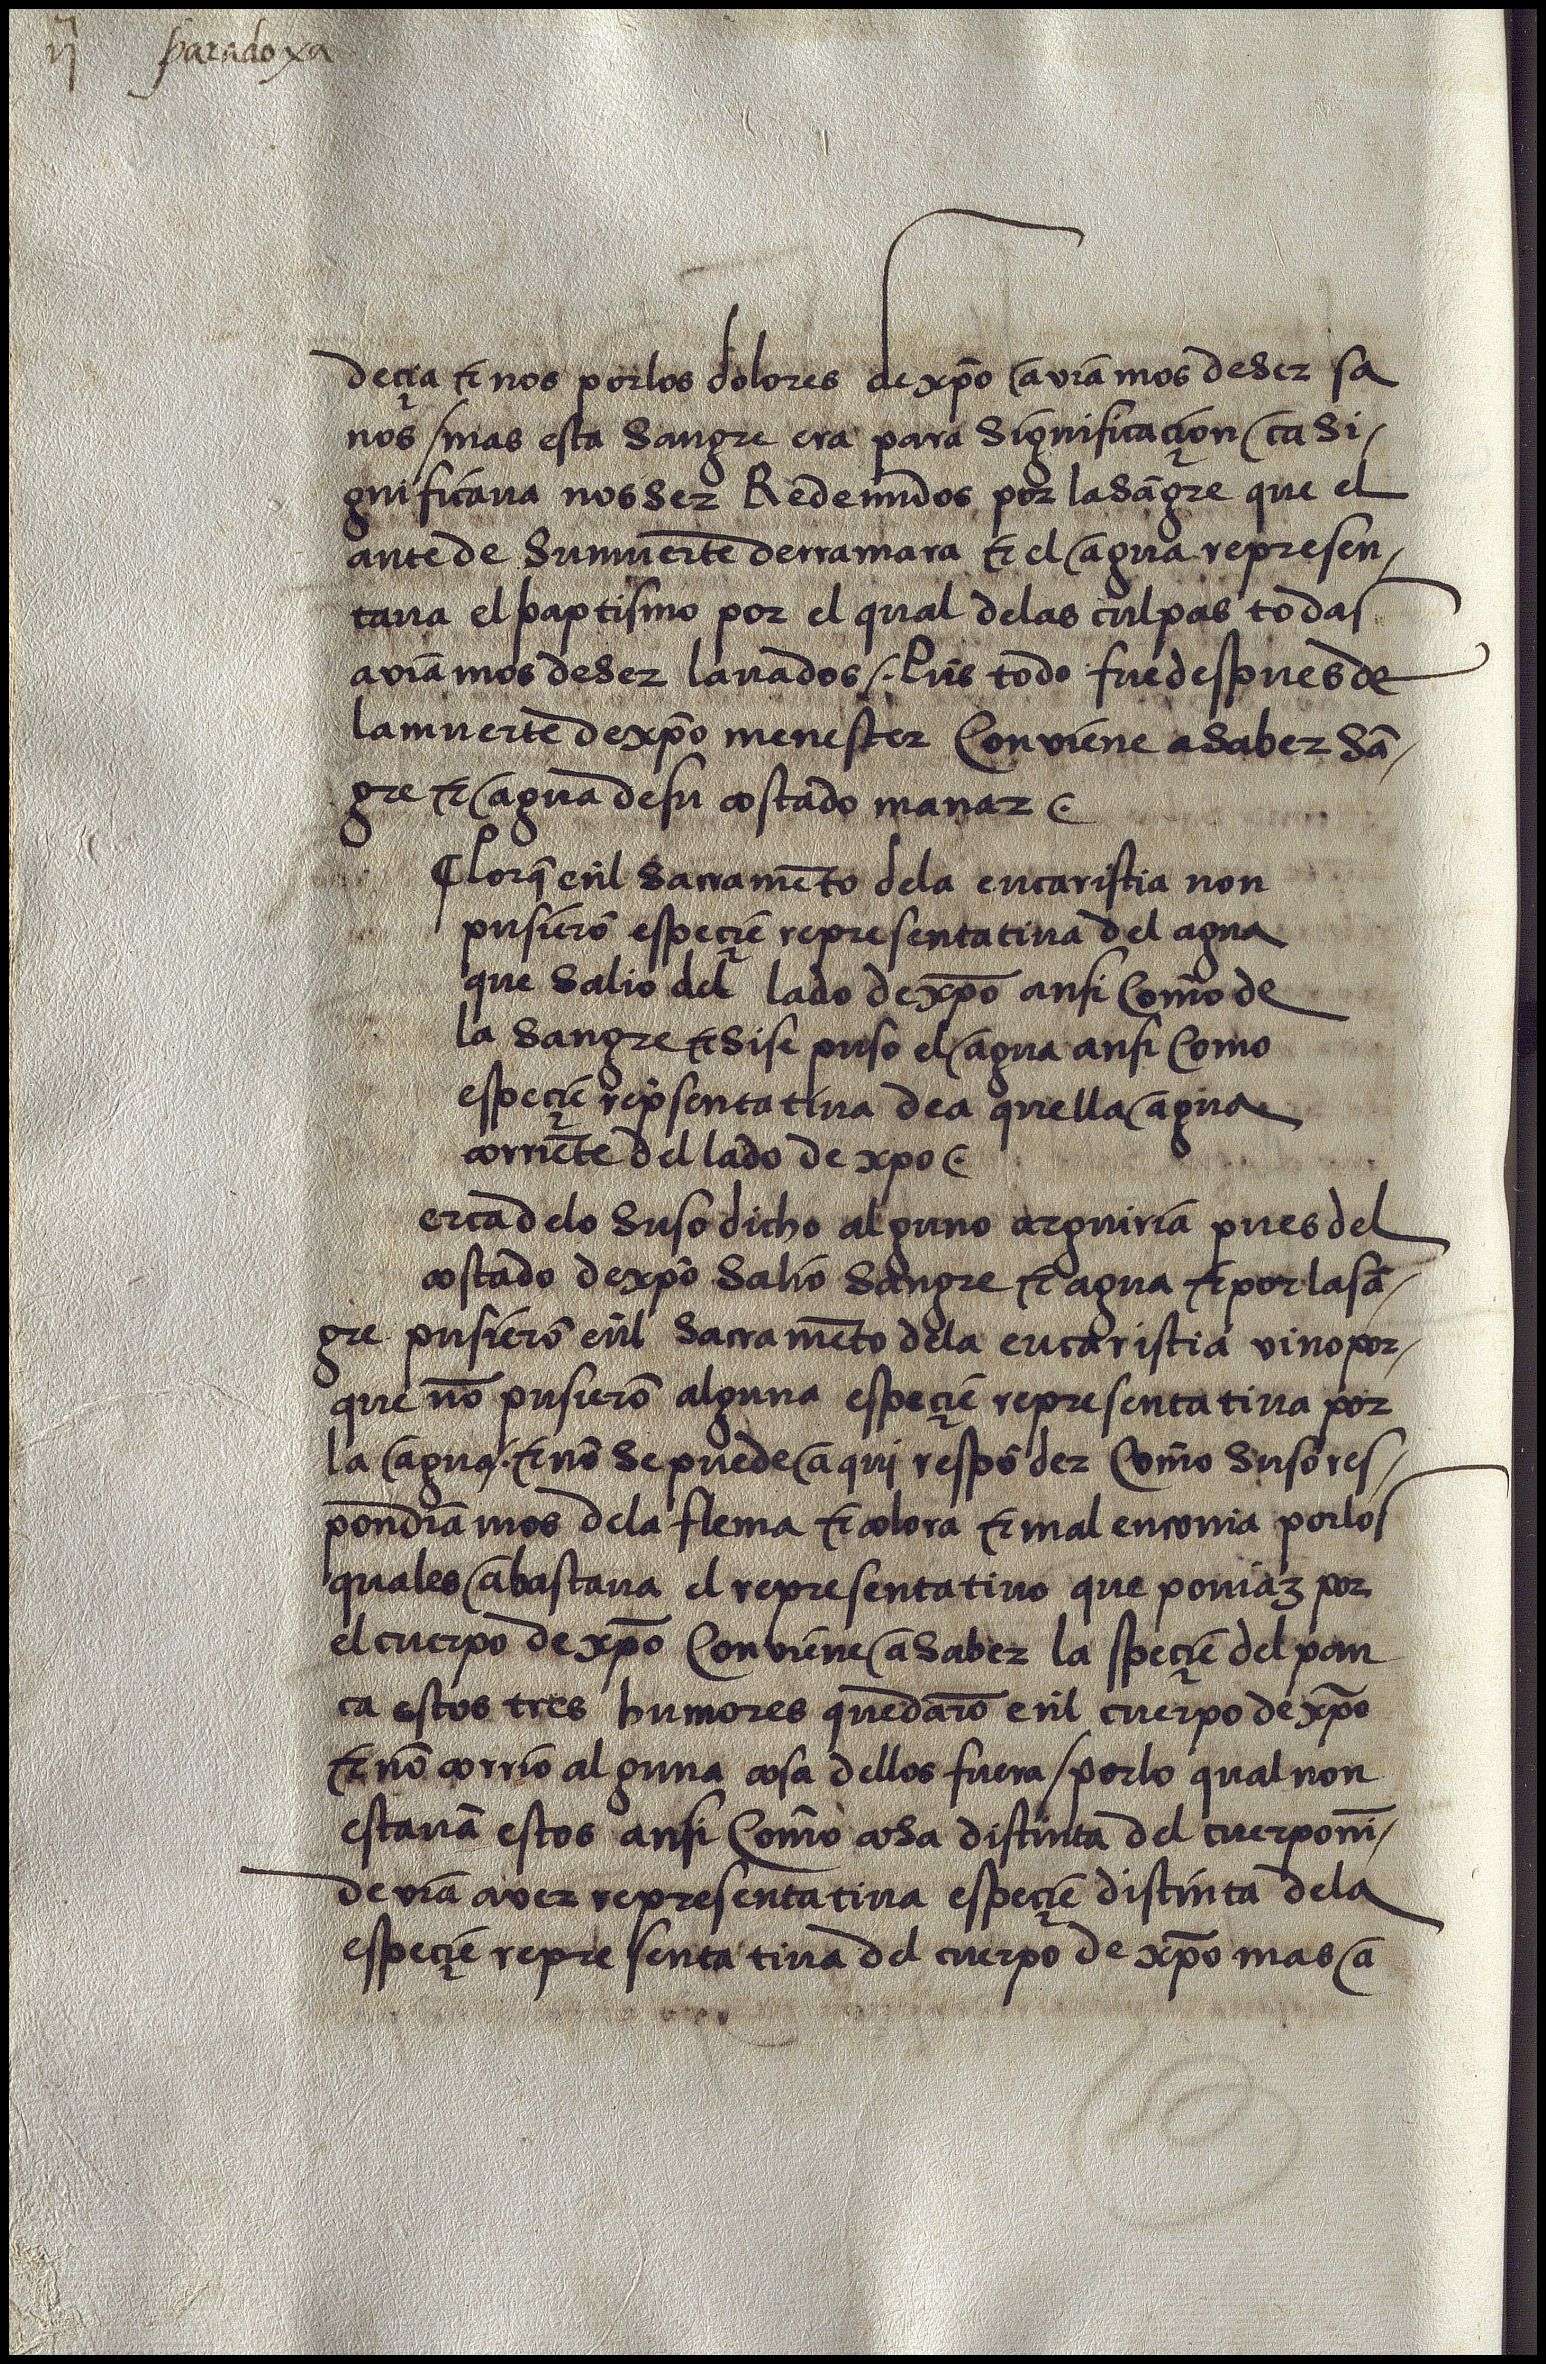 ij paradoxa
deçia & nos por los dolores de xp̃o auiamos de ser sa
nos / mas esta sangre era para significaçion ca si/
gnificaua nos ser Redemidos por la sãgre que el
ante de su muerte derramara & el agua represen/
taua el baptismo por el qual delas culpas todas
auiamos de ser lauados /. Pues todo fue despues de
la muerte de xp̃o menester Conuiene a saber sã/
gre & agua de su costado manar
¶ Porq̃ en̄l sacramẽto dela eucaristia non
pusierõ espeçie representatiua del agua
que salio del lado de xp̃o ansi Como de
la sangre & si se puso el agua ansi Como
espeçie rep̃sentatiua de aquella agua
corriẽte del lado de xpo
erca delo suso dicho alguno arguiria pues del
costado de xp̃o salio sangre & agua & por la sã/
gre pusierõ en̄l sacramẽto dela eucaristia vino por/
que nõ pusierõ alguna espeçie representatiua por
la agua /. & nõ se puede aqui respõder Como suso res/
pondiamos dela flema & colora & malenconia por los
quales abastaua el representatiuo que poniaz por
el cuerpo de xp̃o Conuiene a saber la speçie del pan
ca estos tres humores quedarõ en̄l cuerpo de xp̃o
& nõ corrio alguna cosa dellos fuera / por lo qual non
estauã estos ansi Como cosa distinta del cuerpo nĩ/
deuia auer representatiua espeçie distinta dela
espeçie representatiua del cuerpo de xp̃o mas a